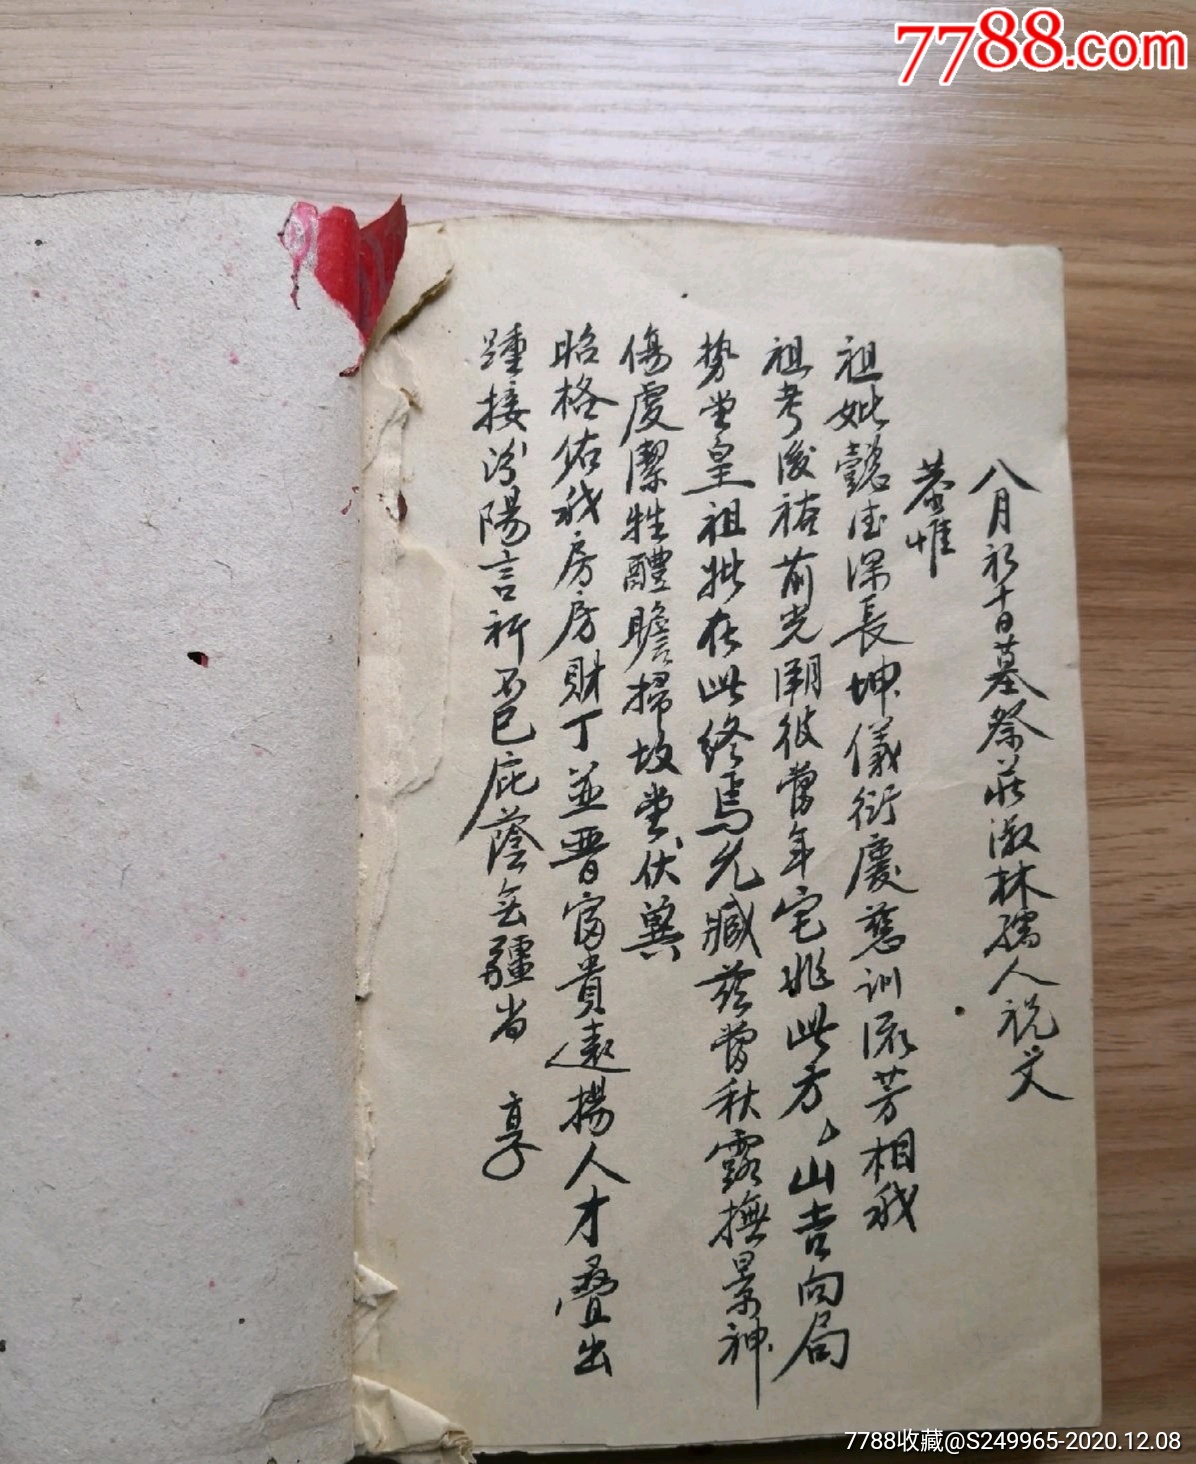 7788.com
八月初十日墓祭莊淑林孺人祝文
恭惟
祖妣懿德深長坤儀衍慶慈訓流芳相我
祖考後裕前光溯彼當年宅兆此方山吉向局
勢堂皇祖妣在此終焉允臧茲當秋露撫景神
傷虔潔牲醴瞻掃坟堂伏冀
昭格佑我房房財丁並晋富貴遠揚人才疊出
踵接汾陽言祈不已庇蔭無疆尚 享
7788收藏@S249965-2020.12.08